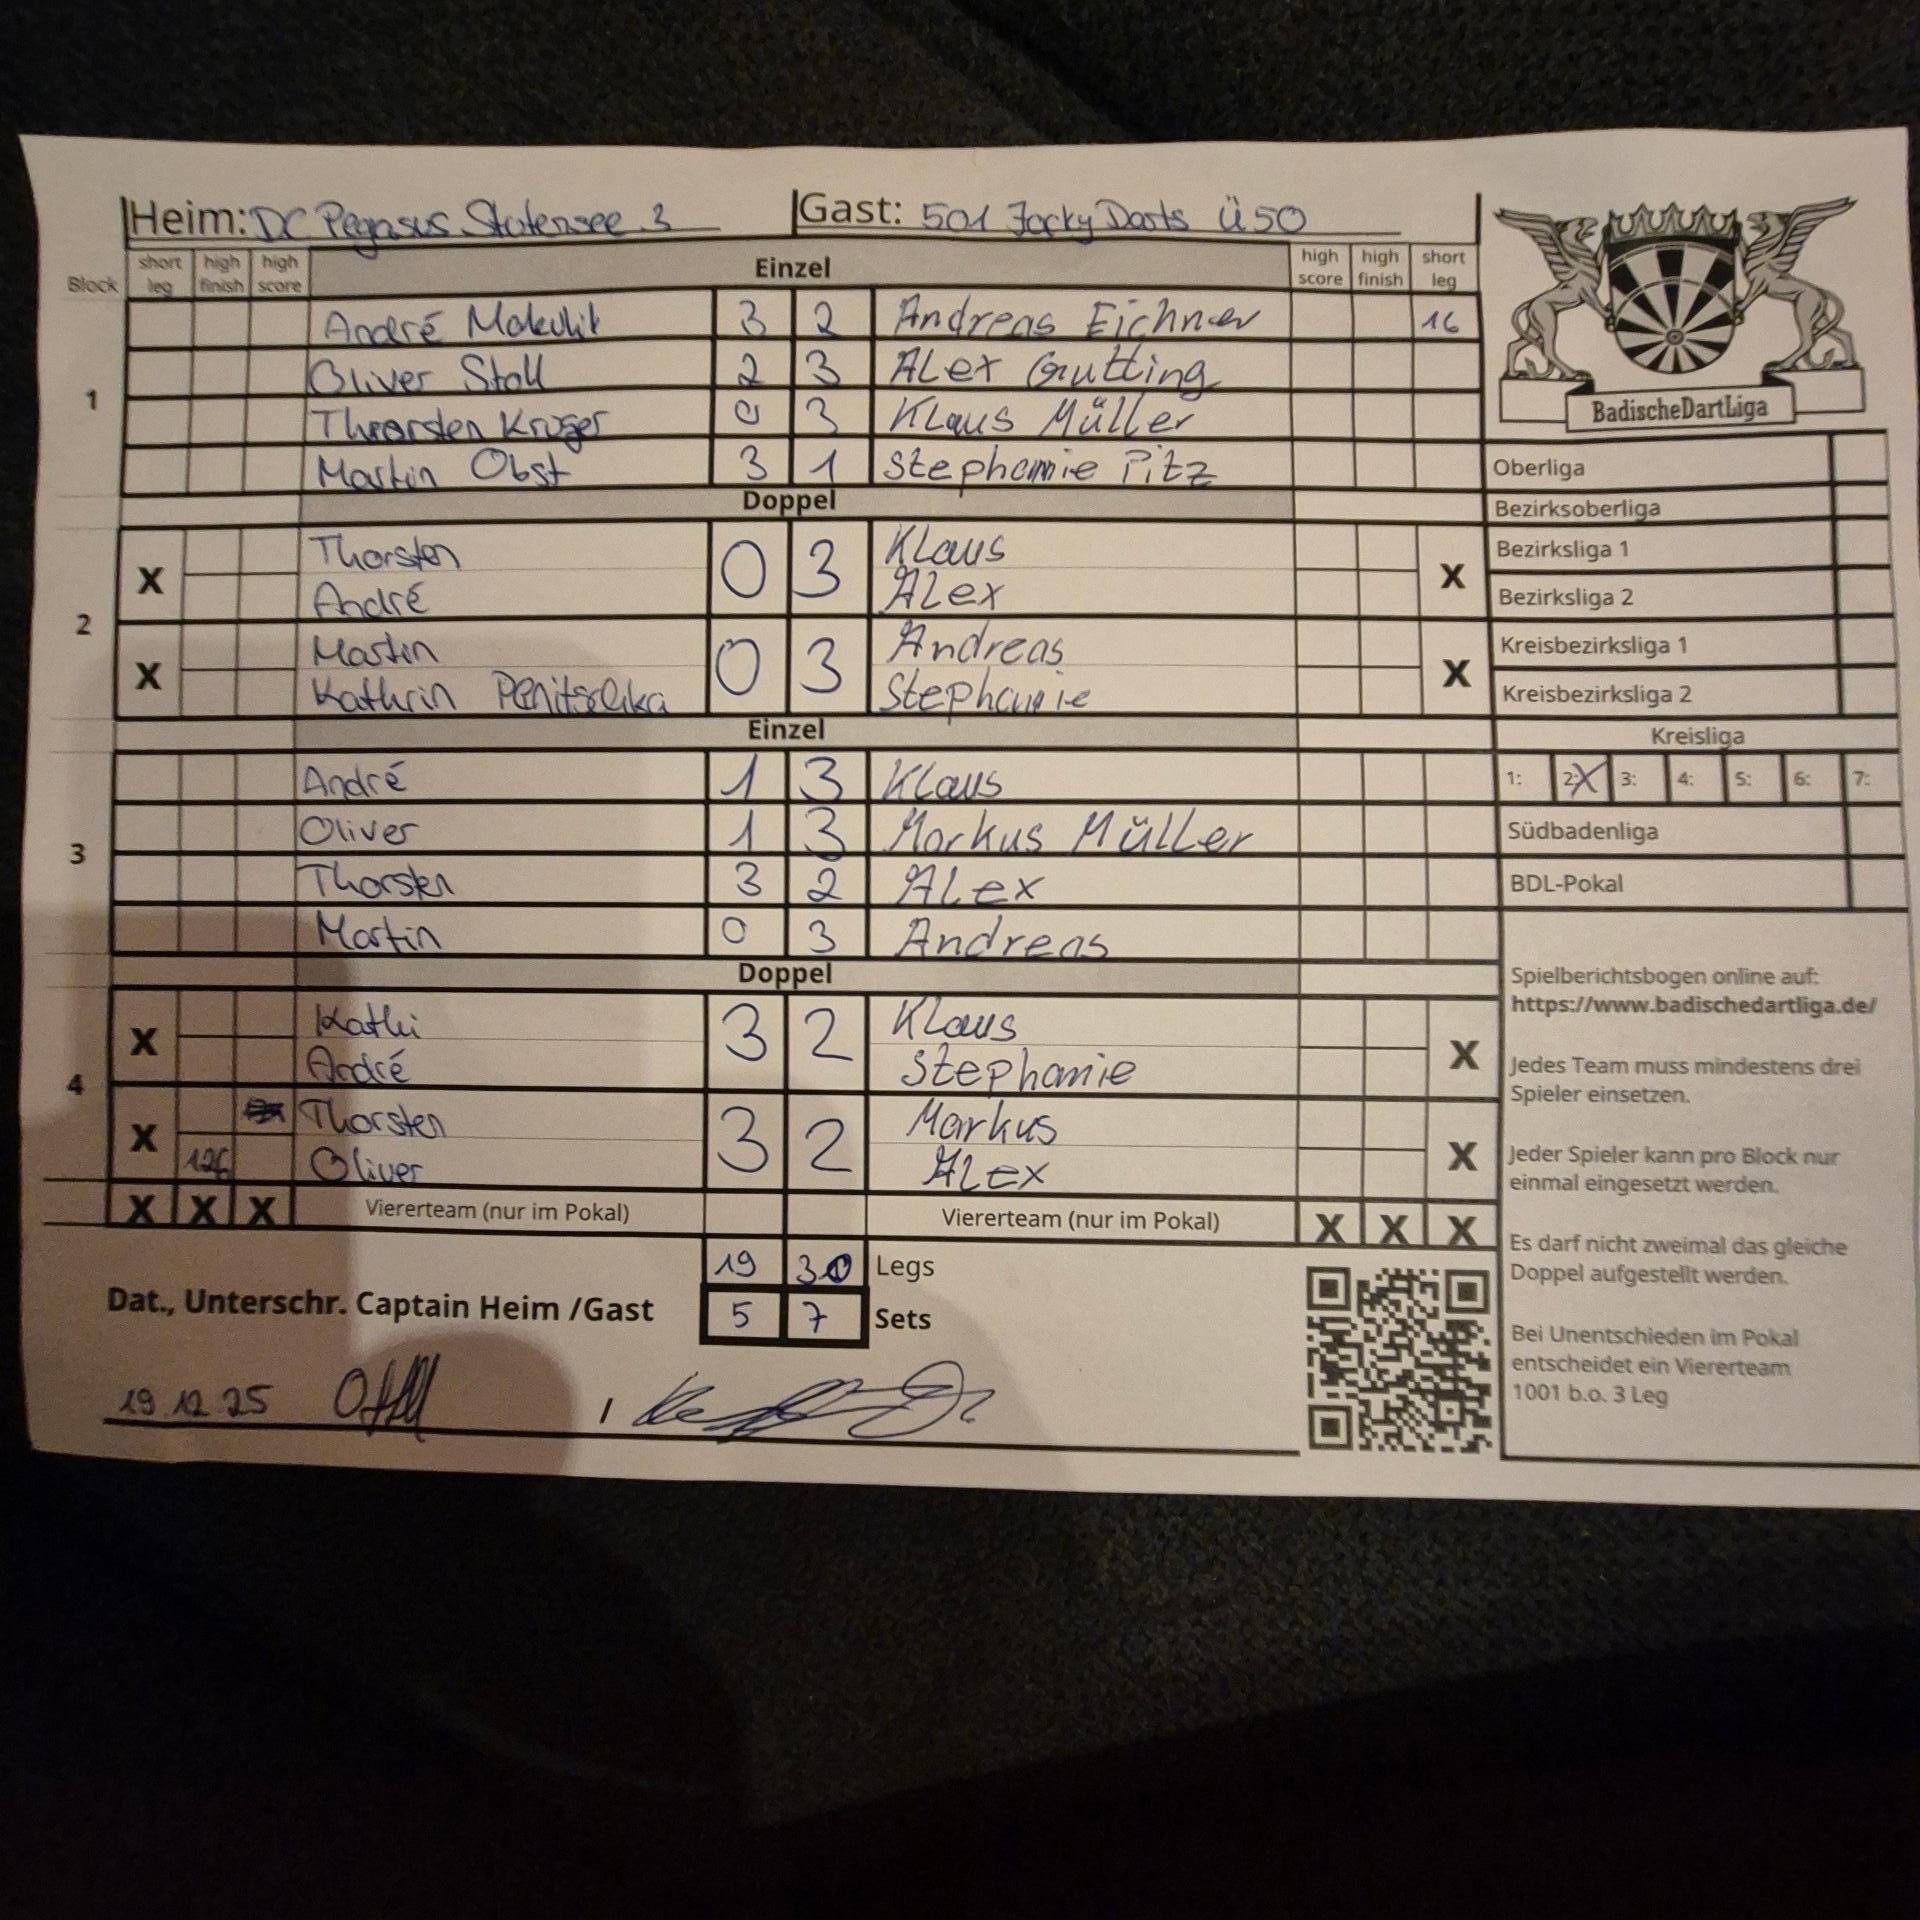 Heim: DC Pegasus Stutensee 3 Gast: 501 Jacky Darts Ü50
Block short leg high finish high score Einzel high score high finish short leg
1
André Makulik 3 2 Andreas Eichner 16
Oliver Stoll 2 3 Alex Gutting
Thorsten Krüger 0 3 Klaus Müller
Martin Obst 3 1 Stephanie Pitz
Doppel
2
X Thorsten 0 3 Klaus X
André Alex
X Martin 0 3 Andreas X
Kathrin Stephanie
Einzel
3
André 1 3 Klaus
Oliver 1 3 Markus Müller
Thorsten 3 2 Alex
Martin 0 3 Andreas
Doppel
4
X Kathi 3 2 Klaus X
André Stephanie
X Thorsten 3 2 Markus X
126 Oliver Alex
X X X Viererteam (nur im Pokal) Viererteam (nur im Pokal) X X X
19 30 Legs
5 7 Sets
Dat., Unterschr. Captain Heim /Gast
19.12.25 /
BadischeDartLiga
Oberliga
Bezirksoberliga
Bezirksliga 1
Bezirksliga 2
Kreisbezirksliga 1
Kreisbezirksliga 2
Kreisliga
1: 2: X 3: 4: 5: 6: 7:
Südbadenliga
BDL-Pokal
Spielberichtsbogen online auf:
https://www.badischedartliga.de/
Jedes Team muss mindestens drei
Spieler einsetzen.
Jeder Spieler kann pro Block nur
einmal eingesetzt werden.
Es darf nicht zweimal das gleiche
Doppel aufgestellt werden.
Bei Unentschieden im Pokal
entscheidet ein Viererteam
1001 b.o. 3 Leg